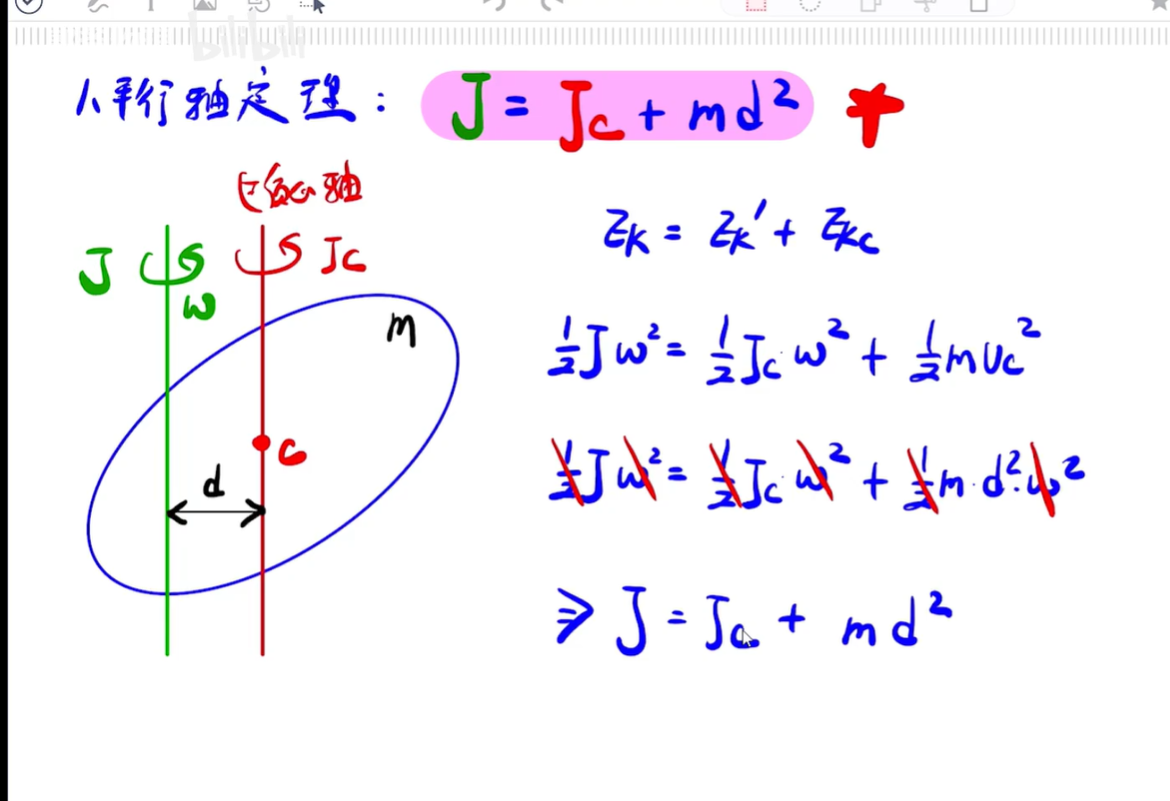 bilibili
1、平行轴定理: J = Jc + md²
过质心轴
J ω Jc
m
c
d
Ek = Ek' + Ekc
½Jω² = ½Jc·ω² + ½mvc²
½Jω² = ½Jc·ω² + ½m·d²·ω²
⇒ J = Jc + md²